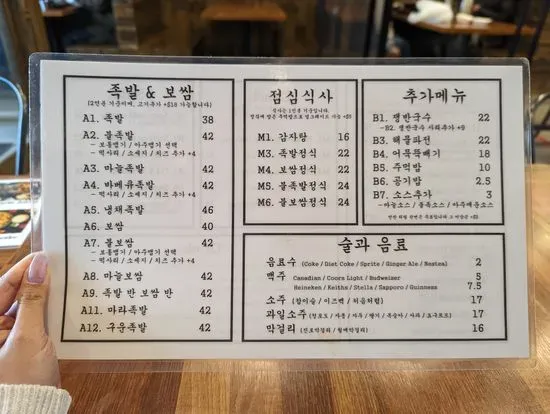 족발 & 보쌈
(2인분 기준이며, 고기추가 +$18 가능합니다)
A1. 족발 38
A2. 불족발 42
- 보통맵기 / 아주맵기 선택
- 떡사리 / 소세지 / 치즈 추가 +4
A3. 마늘족발 42
A4. 바베큐족발 42
- 떡사리 / 소세지 / 치즈 추가 +4
A5. 냉채족발 46
A6. 보쌈 40
A7. 불보쌈 42
- 보통맵기 / 아주맵기 선택
- 떡사리 / 소세지 / 치즈 추가 +4
A8. 마늘보쌈 42
A9. 족발 반 보쌈 반 42
A11. 마라족발 42
A12. 구운족발 42
점심식사
식사는 1인분 기준입니다.
M1. 감자탕 16
M3. 족발정식 22
M4. 보쌈정식 22
M5. 불족발정식 24
M6. 불보쌈정식 24
추가메뉴
B1. 쟁반국수 22
- B2. 쟁반국수 사리추가 +9
B3. 해물파전 22
B4. 어묵뚝배기 18
B5. 주먹밥 10
B6. 공기밥 2.5
B7. 소스추가 3
- 마늘소스 / 불족소스 / 아주매운소스
술과 음료
음료수 (Coke / Diet Coke / Sprite / Ginger Ale / Nestea) 2
맥주 Canadian / Coors Light / Budweiser 5
Heineken / Keiths / Stella / Sapporo / Guinness 7.5
소주 (참이슬 / 이즈백 / 처음처럼) 17
과일소주 (청포도 / 자몽 / 자두 / 딸기 / 복숭아 / 사과 / 요구르트) 17
막걸리 16